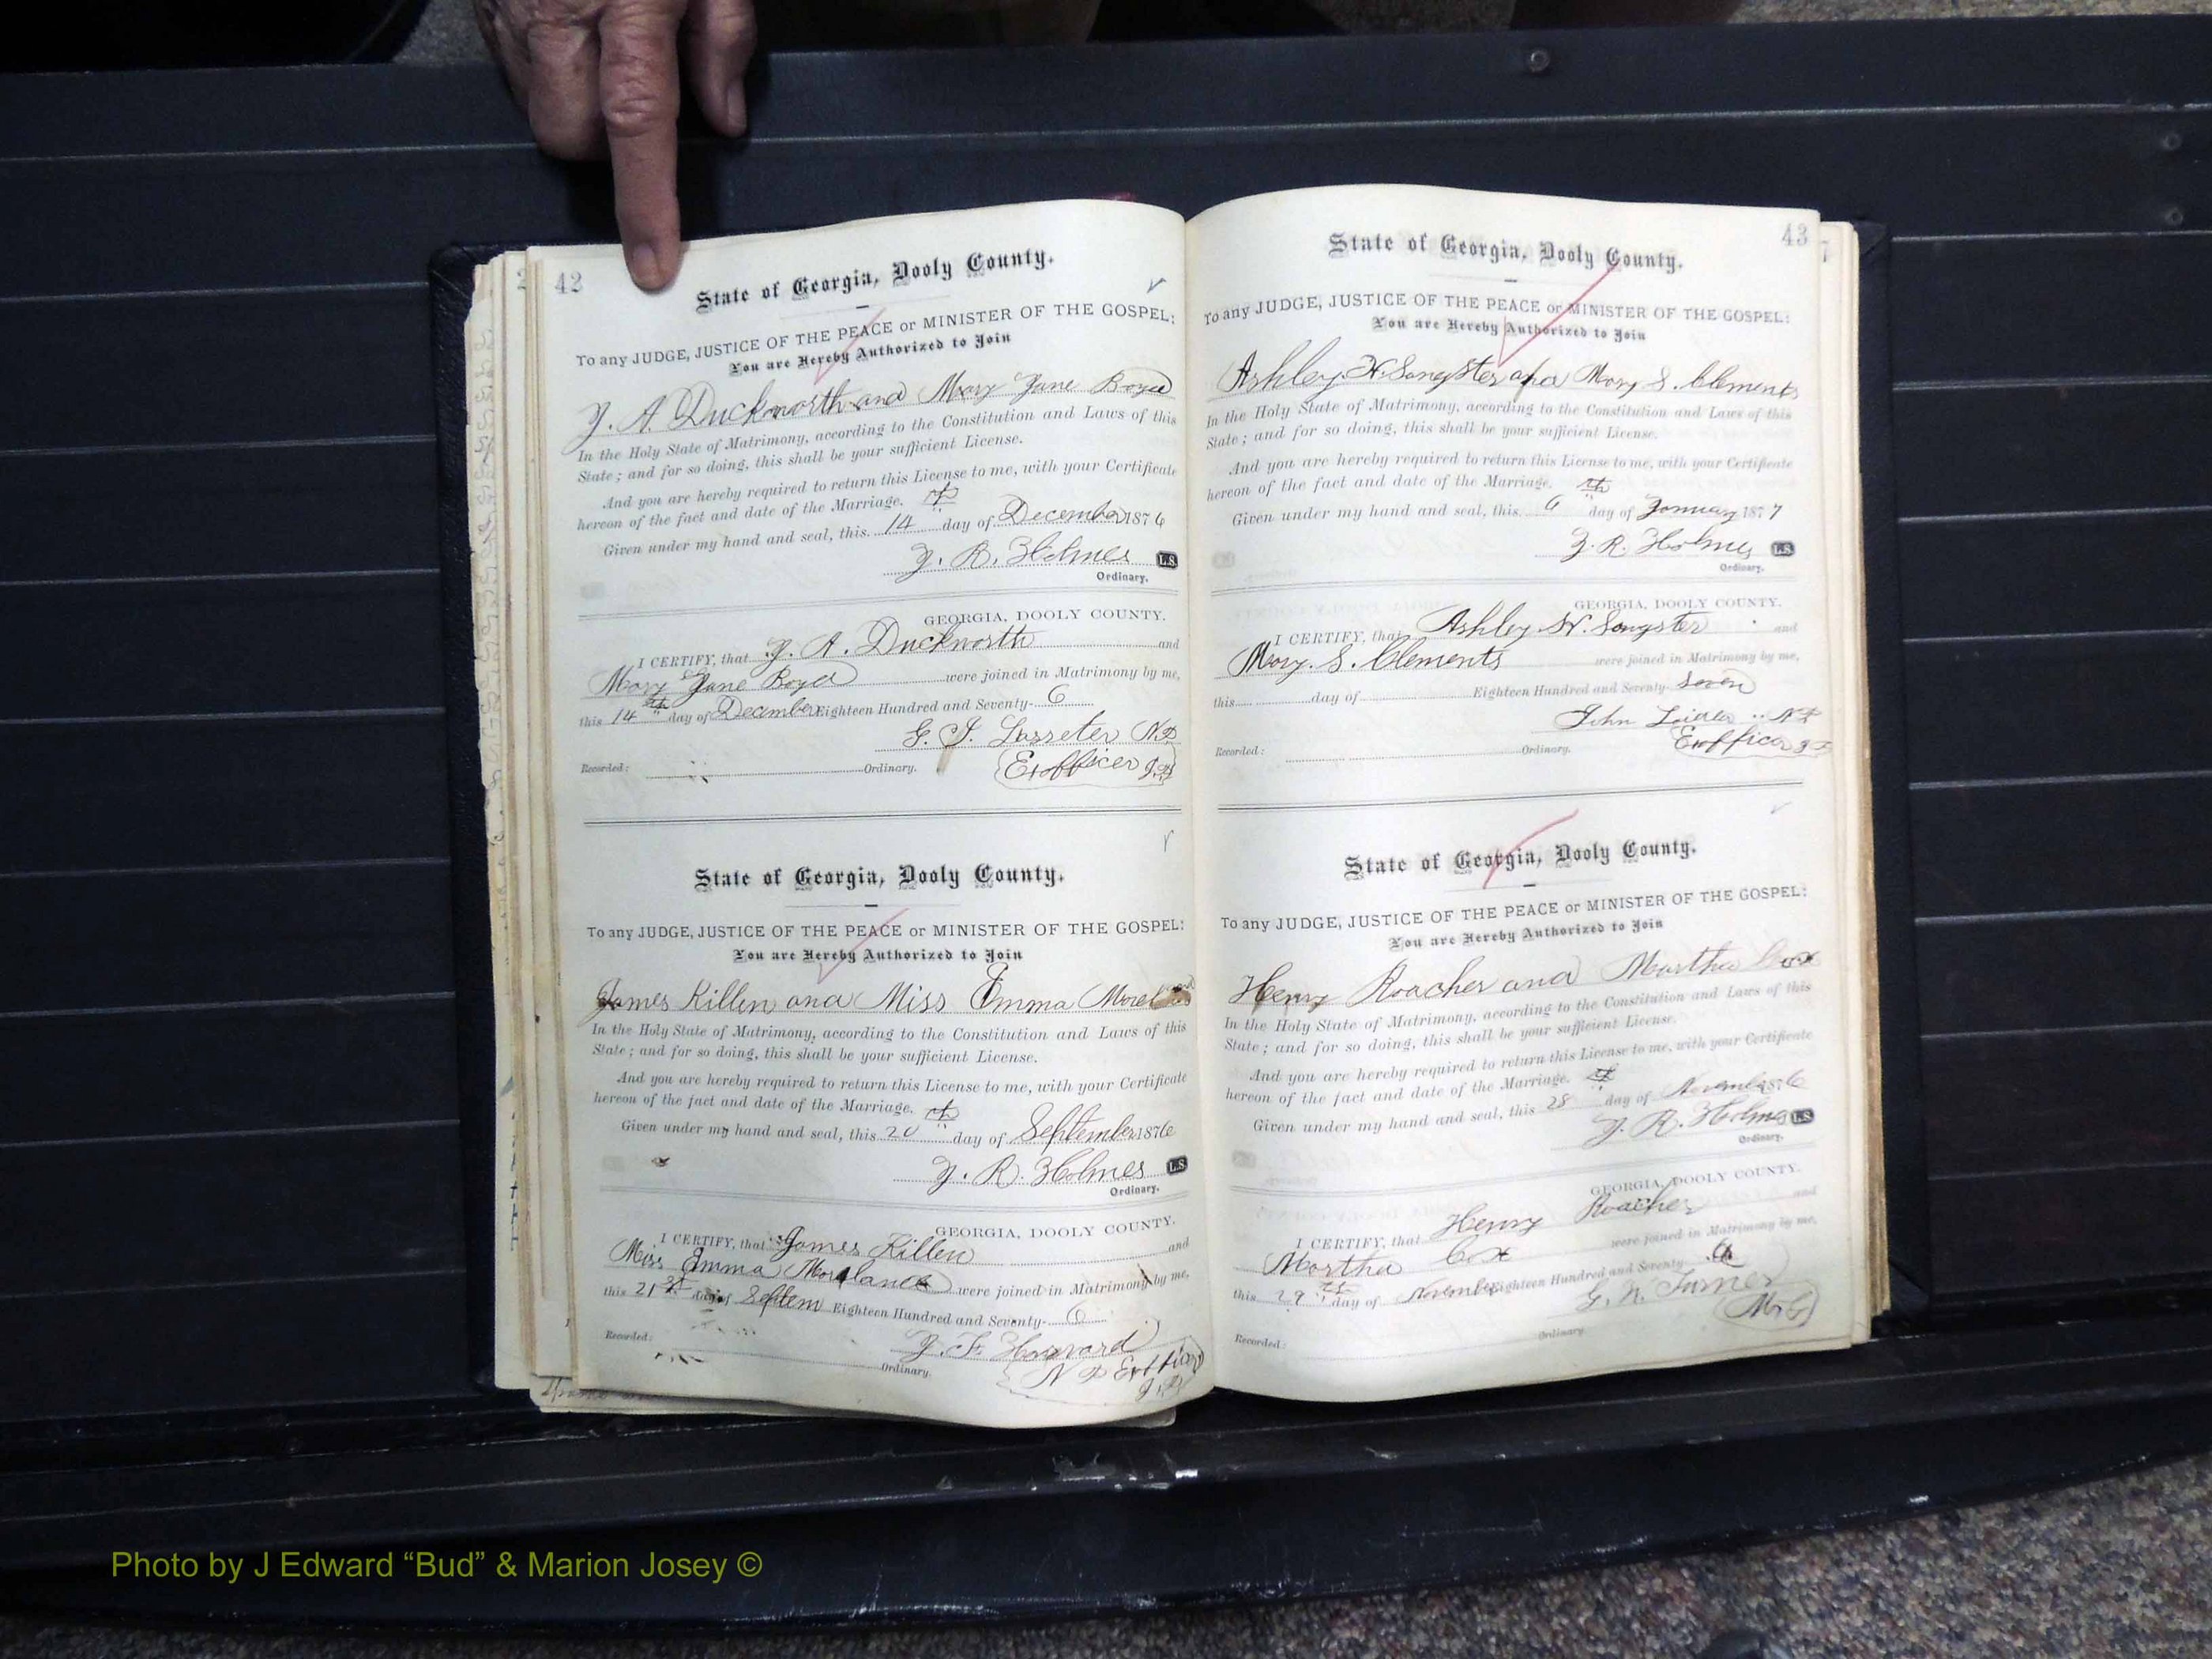 42
State of Georgia, Dooly County.
To any JUDGE, JUSTICE OF THE PEACE or MINISTER OF THE GOSPEL:
You are Hereby Authorized to Join
J. A. Duckworth and Mary Jane Boyd
In the Holy State of Matrimony, according to the Constitution and Laws of this
State; and for so doing, this shall be your sufficient License.
And you are hereby required to return this License to me, with your Certificate
hereon of the fact and date of the Marriage.
Given under my hand and seal, this 14th day of December 1876
J. R. Holmes L.S.
Ordinary.
GEORGIA, DOOLY COUNTY.
I CERTIFY, that J. A. Duckworth and
Mary Jane Boyd were joined in Matrimony by me,
this 14th day of December Eighteen Hundred and Seventy- 6
G. J. Lasseter N.P
Recorded: Ordinary. Exofficer J.P
State of Georgia, Dooly County.
To any JUDGE, JUSTICE OF THE PEACE or MINISTER OF THE GOSPEL:
You are Hereby Authorized to Join
James Killen and Miss Emma Moreland
In the Holy State of Matrimony, according to the Constitution and Laws of this
State; and for so doing, this shall be your sufficient License.
And you are hereby required to return this License to me, with your Certificate
hereon of the fact and date of the Marriage.
Given under my hand and seal, this 20th day of September 1876
J. R. Holmes L.S.
Ordinary.
GEORGIA, DOOLY COUNTY.
I CERTIFY, that James Killen and
Miss Emma Moreland were joined in Matrimony by me,
this 21st day of Septem Eighteen Hundred and Seventy- 6
Recorded: J. F. Howard
Ordinary. N P
J.P
43
State of Georgia, Dooly County.
To any JUDGE, JUSTICE OF THE PEACE or MINISTER OF THE GOSPEL:
You are Hereby Authorized to Join
Ashley N. Sangster and Mary S. Clements
In the Holy State of Matrimony, according to the Constitution and Laws of this
State; and for so doing, this shall be your sufficient License.
And you are hereby required to return this License to me, with your Certificate
hereon of the fact and date of the Marriage.
Given under my hand and seal, this 6th day of January 1877
J. R. Holmes L.S.
Ordinary.
GEORGIA, DOOLY COUNTY.
I CERTIFY, that Ashley N. Sangster and
Mary. S. Clements were joined in Matrimony by me,
this day of Eighteen Hundred and Seventy- Seven
John N P
Recorded: Ordinary. Exofficer J P
State of Georgia, Dooly County.
To any JUDGE, JUSTICE OF THE PEACE or MINISTER OF THE GOSPEL:
You are Hereby Authorized to Join
Henry Roacher and Martha Cox
In the Holy State of Matrimony, according to the Constitution and Laws of this
State; and for so doing, this shall be your sufficient License.
And you are hereby required to return this License to me, with your Certificate
hereon of the fact and date of the Marriage.
Given under my hand and seal, this 28th day of November 1876
J. R. Holmes L.S.
Ordinary.
GEORGIA, DOOLY COUNTY.
I CERTIFY, that Henry Roacher and
Martha Cox were joined in Matrimony by me,
this 29th day of November Eighteen Hundred and Seventy 6
G. W. Turner
M.G
Recorded: Ordinary.
Photo by J Edward “Bud” & Marion Josey ©